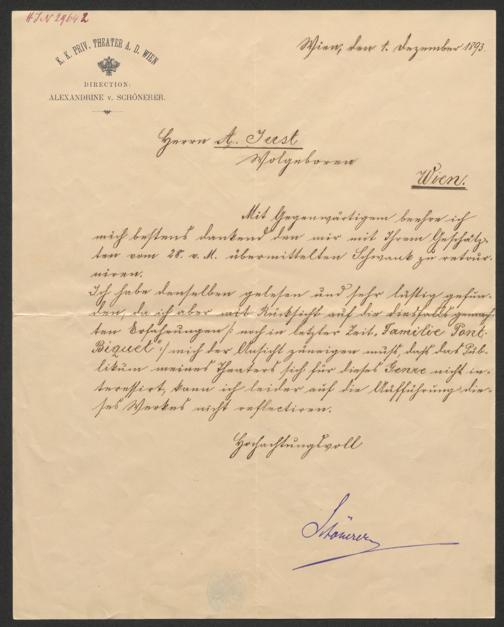 H.I.N 29642
K. K. PRIV. THEATER A. D. WIEN
DIRECTION:
ALEXANDRINE v. SCHÖNERER.
Wien, den 1. Dezember 1893.
Herrn A. Just
Wolgeboren
Wien.
Mit Gegenwärtigem beehre ich
mich bestens dankend den mir mit Ihrem Geschätz-
ten vom 28. v. M. übermittelten Schwank zu retour-
niren.
Ich habe denselben gelesen und sehr lustig gefun-
den, da ich aber mit Rücksicht auf die diesfalls gemach-
ten Erfahrungen /: noch in letzter Zeit. Familie Pont-
Biquet" :/ mich der Ansicht zuneigen muß, daß das Pub-
likum meines Theaters sich für dieses Genre nicht in-
teressirt, kann ich leider auf die Aufführung die-
ses Werkes nicht reflectiren.
Hochachtungsvoll
Schönerer